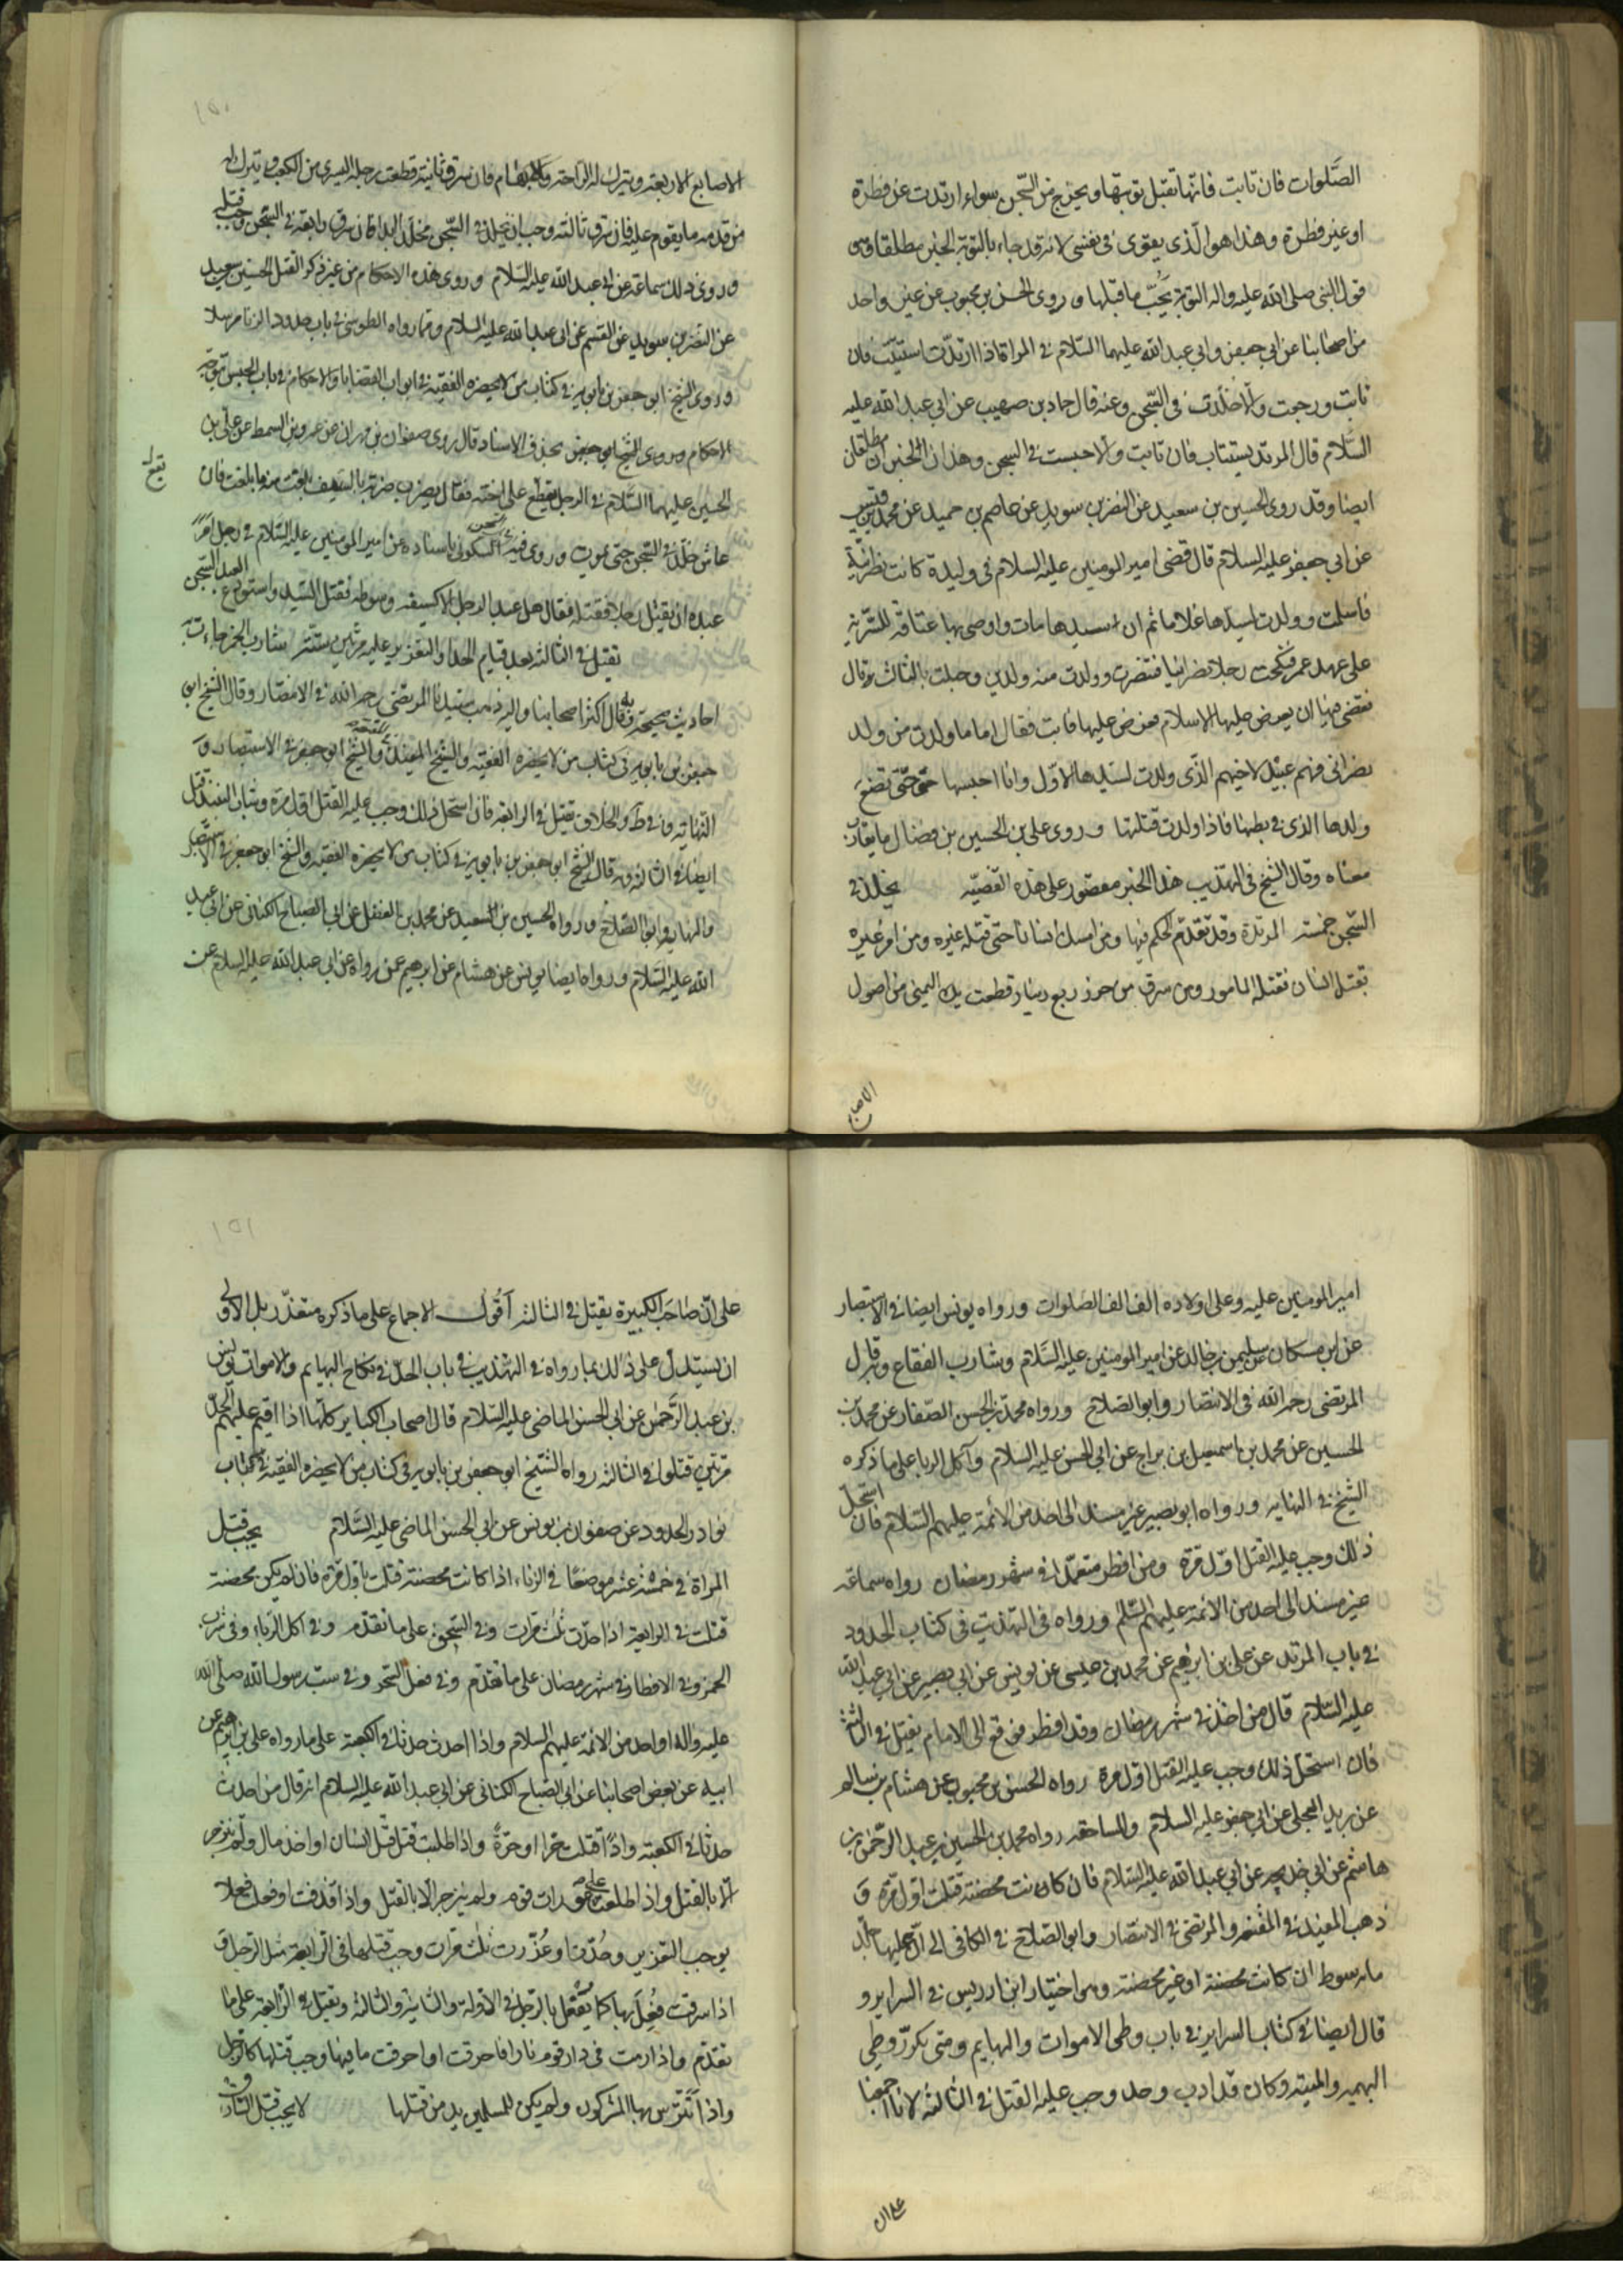 الصَّلوات فان تابت فانها تقبل توبتها ويخرج من السّجن سواء ارتدت عن فطرة
او غير فطرة وهذا هو الّذي يقوى في نفسي لانه قد جاء بالتوبة الخبر مطلقا وهو
قول النبي صلى الله عليه واله التوبة يَجُبّ ما قبلها وروى الحسن بن محبوب عن غير واحد
من اصحابنا عن ابي جعفر وابي عبد الله عليهما السّلام في المراة اذا ارتدّت استتيبت فان
تابت ورجعت والا خلّدت في السّجن وعنه قال حماد بن صهيب عن ابي عبد الله عليه
السّلام قال المرتد يستتاب فان تابت والا حبست في السجن وهذان الخبران مطلقان
ايضا وقد روى الحسين بن سعيد عن النضر بن سويد عن عاصم بن حميد عن محمد بن قيس
عن ابي جعفر عليه السلام قال قضى امير المومنين عليه السلام في وليدة كانت نظرانية
فاسلمت وولدت لسيدها غلاما ثم ان سيدها مات واوصى بها عتاقة للسّرية
على عهد عمر فنكحت رجلا نضرانيا فتنضرت وولدت منه ولدين وحبلت بالثالث قال
فقضى فيها ان يعرض عليها الاسلام فعرض عليها فابت فقال اما ما ولدت من ولد
نضراني فهم عبيد لاخيهم الذي ولدت لسيدها الاوّل وانا احبسها حتّى تضع
ولدها الذي في بطنها فاذا ولدت قتلتها وروى علي بن الحسين بن فضال ما يقارب
معناه وقال الشيخ في التهذيب هذا الخبر مقصور على هذه القضيّه يخلد في
السّجن خمسة المرتدة وقد تقدّم الحكم فيها ومن امسك انسانا حتى قتله غيره ومن امر غيره
بقتل انسان فقتله المامور ومن سرق من حرز ربع دينار قطعت يده اليمنى من اصول
الاصابع
١٥٠
الاصابع الاربعة ويترك له الراحة والابهام فان سرق ثانية قطعت رجله اليسرى من الكعب ويترك له
من قدمه ما يقوم عليه فان سرق ثالثة وجب ان يخلد في السّجن مخلّد ابدا فان سرق رابعة في السّجن وجب قتله
وروى ذلك سماعة عن ابي عبد الله عليه السلام وروى هذه الاحكام من غير ذكر القتل الحسين بن سعيد
عن النضر بن سويد عن القسم عن ابي عبد الله عليه السلام وممّا رواه الطوسي في باب حدود الزنا مرسلا
وروى الشيخ ابو جعفر بن بابويه في كتاب من لا يحضره الفقيه في ابواب القضايا والاحكام في باب الحبس بتوجه
الاحكام وروى الشيخ ابي جعفر بحذف الاسناد قال روى صفوان بن مهران عن عمرو بن السمط عن علي بن
الحسين عليهما السّلام في الرجل يقع على اخته فقال يضرب ضربة بالسّيف بلغت منه ما بلغت فان
يقع
عاش خلّد في السّجن حتى يموت وروى فيه السكوني باسناده عن امير المومنين عليه السّلام في رجل امر
عبده ان يقتل رجلا فقتله فقال هل عبد الرجل الا كسيفه وسوطه فقتل السّيد واستودع العبد السّجن
يقتل في الثالثه بعد قيام الحد او التعزير عليه مرّتين ستّة شارب الخمر جاءت به
احاديث صحيحة وبه قال اكثر اصحابنا واليه ذهب سيدنا المرتضى رحمه الله في الانتصار وقال الشيخ ابي
جعفر بن بابويه في كتاب من لا يحضره الفقيه والشيخ المفيد في المقنعة والشيخ ابو جعفر في الاستبصار و
النهاية وفي ط والخلاف يقتل في الرابعة فان استحل ذلك وجب عليه القتل اول مرة وشارب النبيذ يقتل
ايضا في الثالثة وبه قال الشيخ ابي جعفر بن بابويه في كتاب من لا يحضره الفقيه والشيخ ابو جعفر في الاستبصار
والنهاية وابو الصّلاح ورواه الحسين بن السعيد عن محمد بن الفضل عن ابي الصباح الكناني عن ابي عبد
الله عليه السّلام ورواه ايضا يونس عن هشام عن ابرهيم عمن رواه عن ابي عبد الله عليه السلام عن
امير المومنين عليه وعلى اولاده الف الف الصلوات ورواه يونس ايضا في الاستبصار
عن ابن مسكان عن سليمن بن خالد عن امير المومنين عليه السّلام وشارب الفقاع وبه قال
المرتضى رحمه الله في الانتصار وابو الصلاح ورواه محمد بن الحسن الصّفار عن محمد بن
الحسين عن محمد بن اسمعيل بن بزيع عن ابي الحسن عليه السلام وآكل الربا على ما ذكره
الشيخ في النهايه ورواه ابو بصير غير مسند الى احد من الائمة عليهم السّلام فان استحل
ذلك وجب عليه القتل اوّل مرّة ومن افطر متعمدا في شهر رمضان رواه سماعة
غير مسند الى احد من الائمة عليهم السّلم ورواه في التهذيب في كتاب الحدود
في باب المرتد عن علي بن ابرهيم عن محمد بن عيسى عن يونس عن ابي بصير عن ابي عبد الله
عليه السّلام قال من اخذ في شهر رمضان وقد افطر فرفع الى الامام يقتل في الثالثة
فان استحل ذلك وجب عليه القتل اوّل مرة رواه الحسن بن محبوب عن هشام بن سالم
عن بريد العجلي عن ابي جعفر عليه السلام والمساحقه رواه محمد بن الحسين بن عبد الرّحمن بن
هاشم عن ابي خديجه عن ابي عبد الله عليه السّلام فان كانت محصنة قتلت اوّل مرّة و
ذهب المفيد في المقنعة والمرتضى في الانتصار وابو الصّلاح في الكافي الى انّ عليها جلد
مائه سوط ان كانت محصنة او غير محصنة وهو اختيار ابن ادريس في السراير و
قال ايضا في كتاب السراير في باب وطى الاموات والبهايم ومتى تكرّر وطي
البهيمه والميته وكان قد ادب وحد وجب عليه القتل في الثالثة لانا اجمعنا
على ان
١٥١
على انّ صاحب الكبيرة يقتل في الثالثة اقُول الاجماع على ما ذكره متعذّر بل الاولى
ان يستدل على ذلك بما رواه في التهذيب في باب الحدّ في نكاح البهايم والاموات يونس
بن عبد الرّحمن عن ابي الحسن الماضي عليه السّلام قال اصحاب الكبايز كلّها اذا اقيم عليهم الحدّ
مرّتين قتلوا في الثالثه رواه الشّيخ ابو جعفر بن بابويه في كتاب من لا يحضره الفقيه في كتاب
نوادر الحدود عن صفوان بن يونس عن ابي الحسن الماضي عليه السّلام يجب قتل
المراة في خمسة عشر موضعًا في الزناء اذا كانت محصنة قتلت باوّل مرّة فان لم يكن محصنة
قتلت في الرابعة اذا حدّت ثلث مرّات وفي السّحق على ما تقدّم وفي اكل الرّباء وفي شرب
الخمر وفي الافطار في شهر رمضان على ما تقدّم وفي فعل السحر وفي سب رسول الله صلى الله
عليه واله او احد من الائمة عليهم السلام واذا احدث حدثا في الكعبة على ما رواه علي بن ابرهيم عن
ابيه عن بعض اصحابنا عن ابي الصّباح الكناني عن ابي عبد الله عليه السلام انه قال من احدث
حدثا في الكعبة واذا قتلت حرّا او حرّةً واذا طلبت قتل انسان او اخذ مال ولم ينزجر
الّا بالقتل واذا طلعت على عورات قوم ولم ينزجر الا بالقتل واذا قذفت او فعلت فعلا
يوجب التعزير وحُدّت او عُزّرت ثلث مرّات وجب قتلها في الرّابعة مثل الرجل و
اذا سرقت فُعِلَ بها كما يُفعل بالرّجل في الاولة والثانية والثالثة ويقتل في الرّابعة على ما
تقدّم واذا رمت في دار قوم نارا فاحرقت او احرقت ما فيها وجب قتلها كالرجل
واذا تَتَرّس بها المشركون ولم يكن للمسلمين بد من قتلها لا يجب قتل السارق